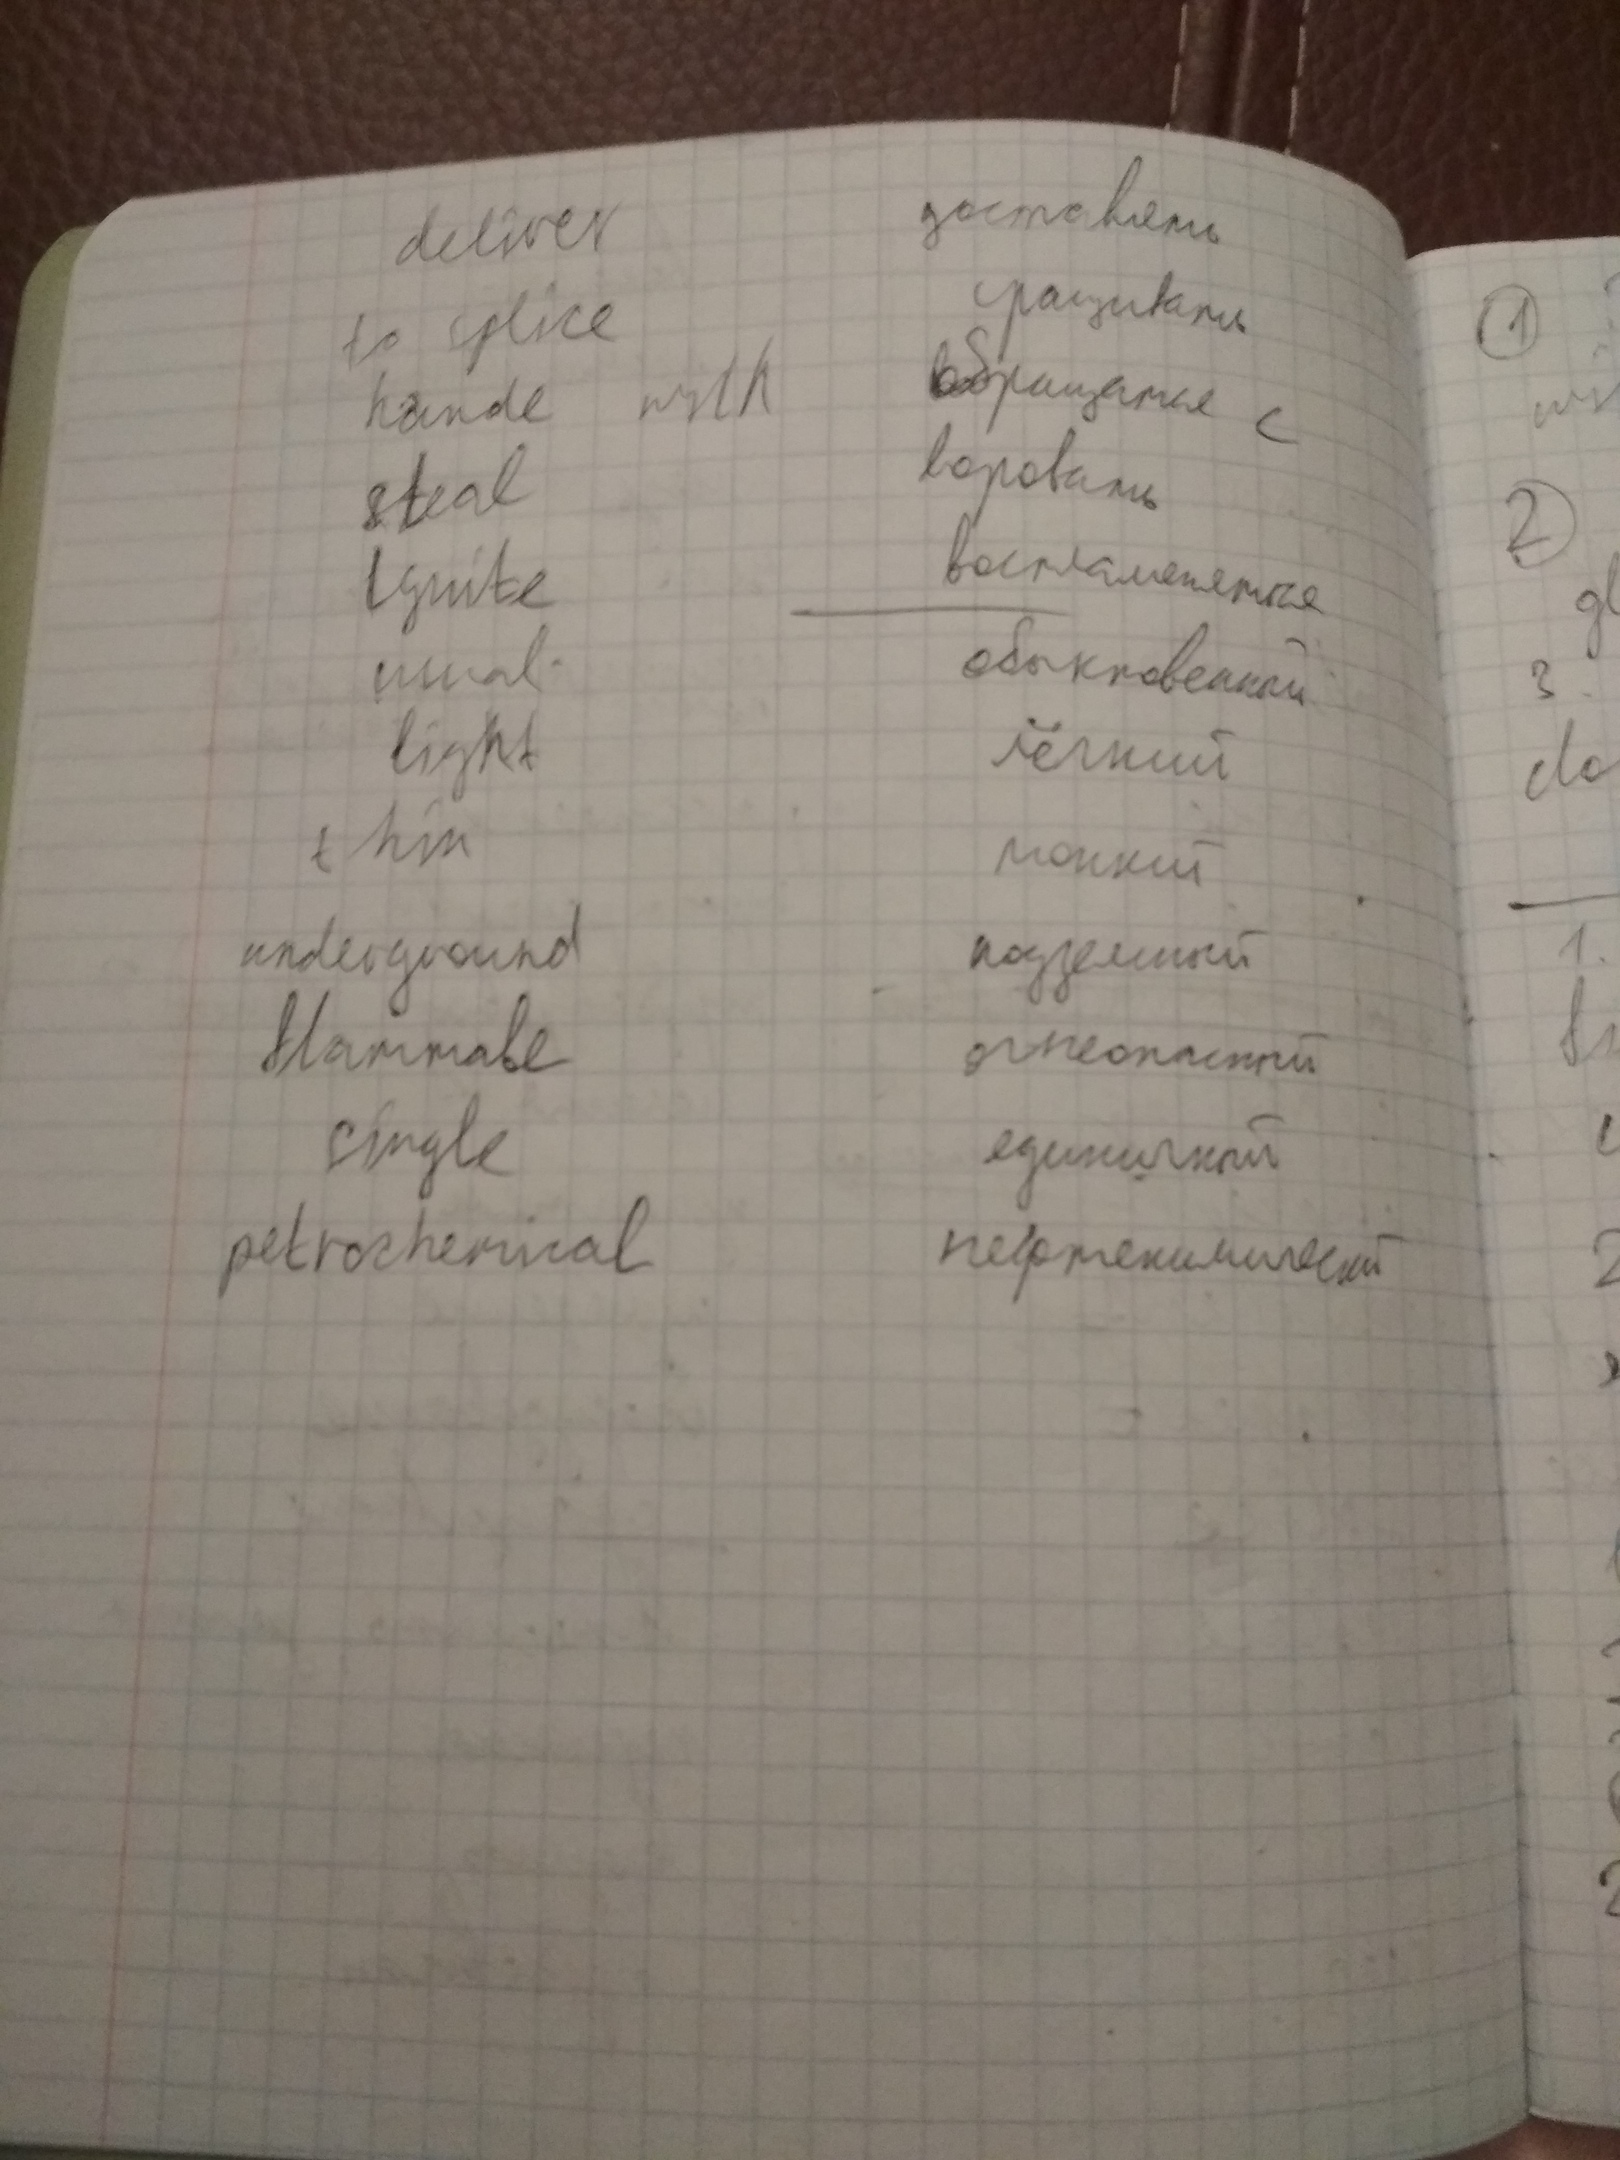 deliver доставлять
to splice сращивать
hande with обращаться с
steal воровать
Ignite воспламеняться
usual обыкновенный
light лёгкий
thin тонкий
underground подземный
flammabe огнеопасный
single единичный
petrochemical нефтехимический
1
2
gl
3.
do
1.